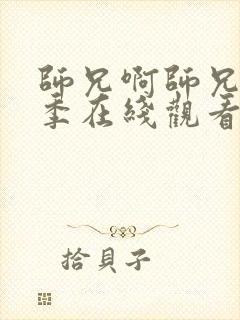 師兄啊師兄
季在綫觀看
拾貝子